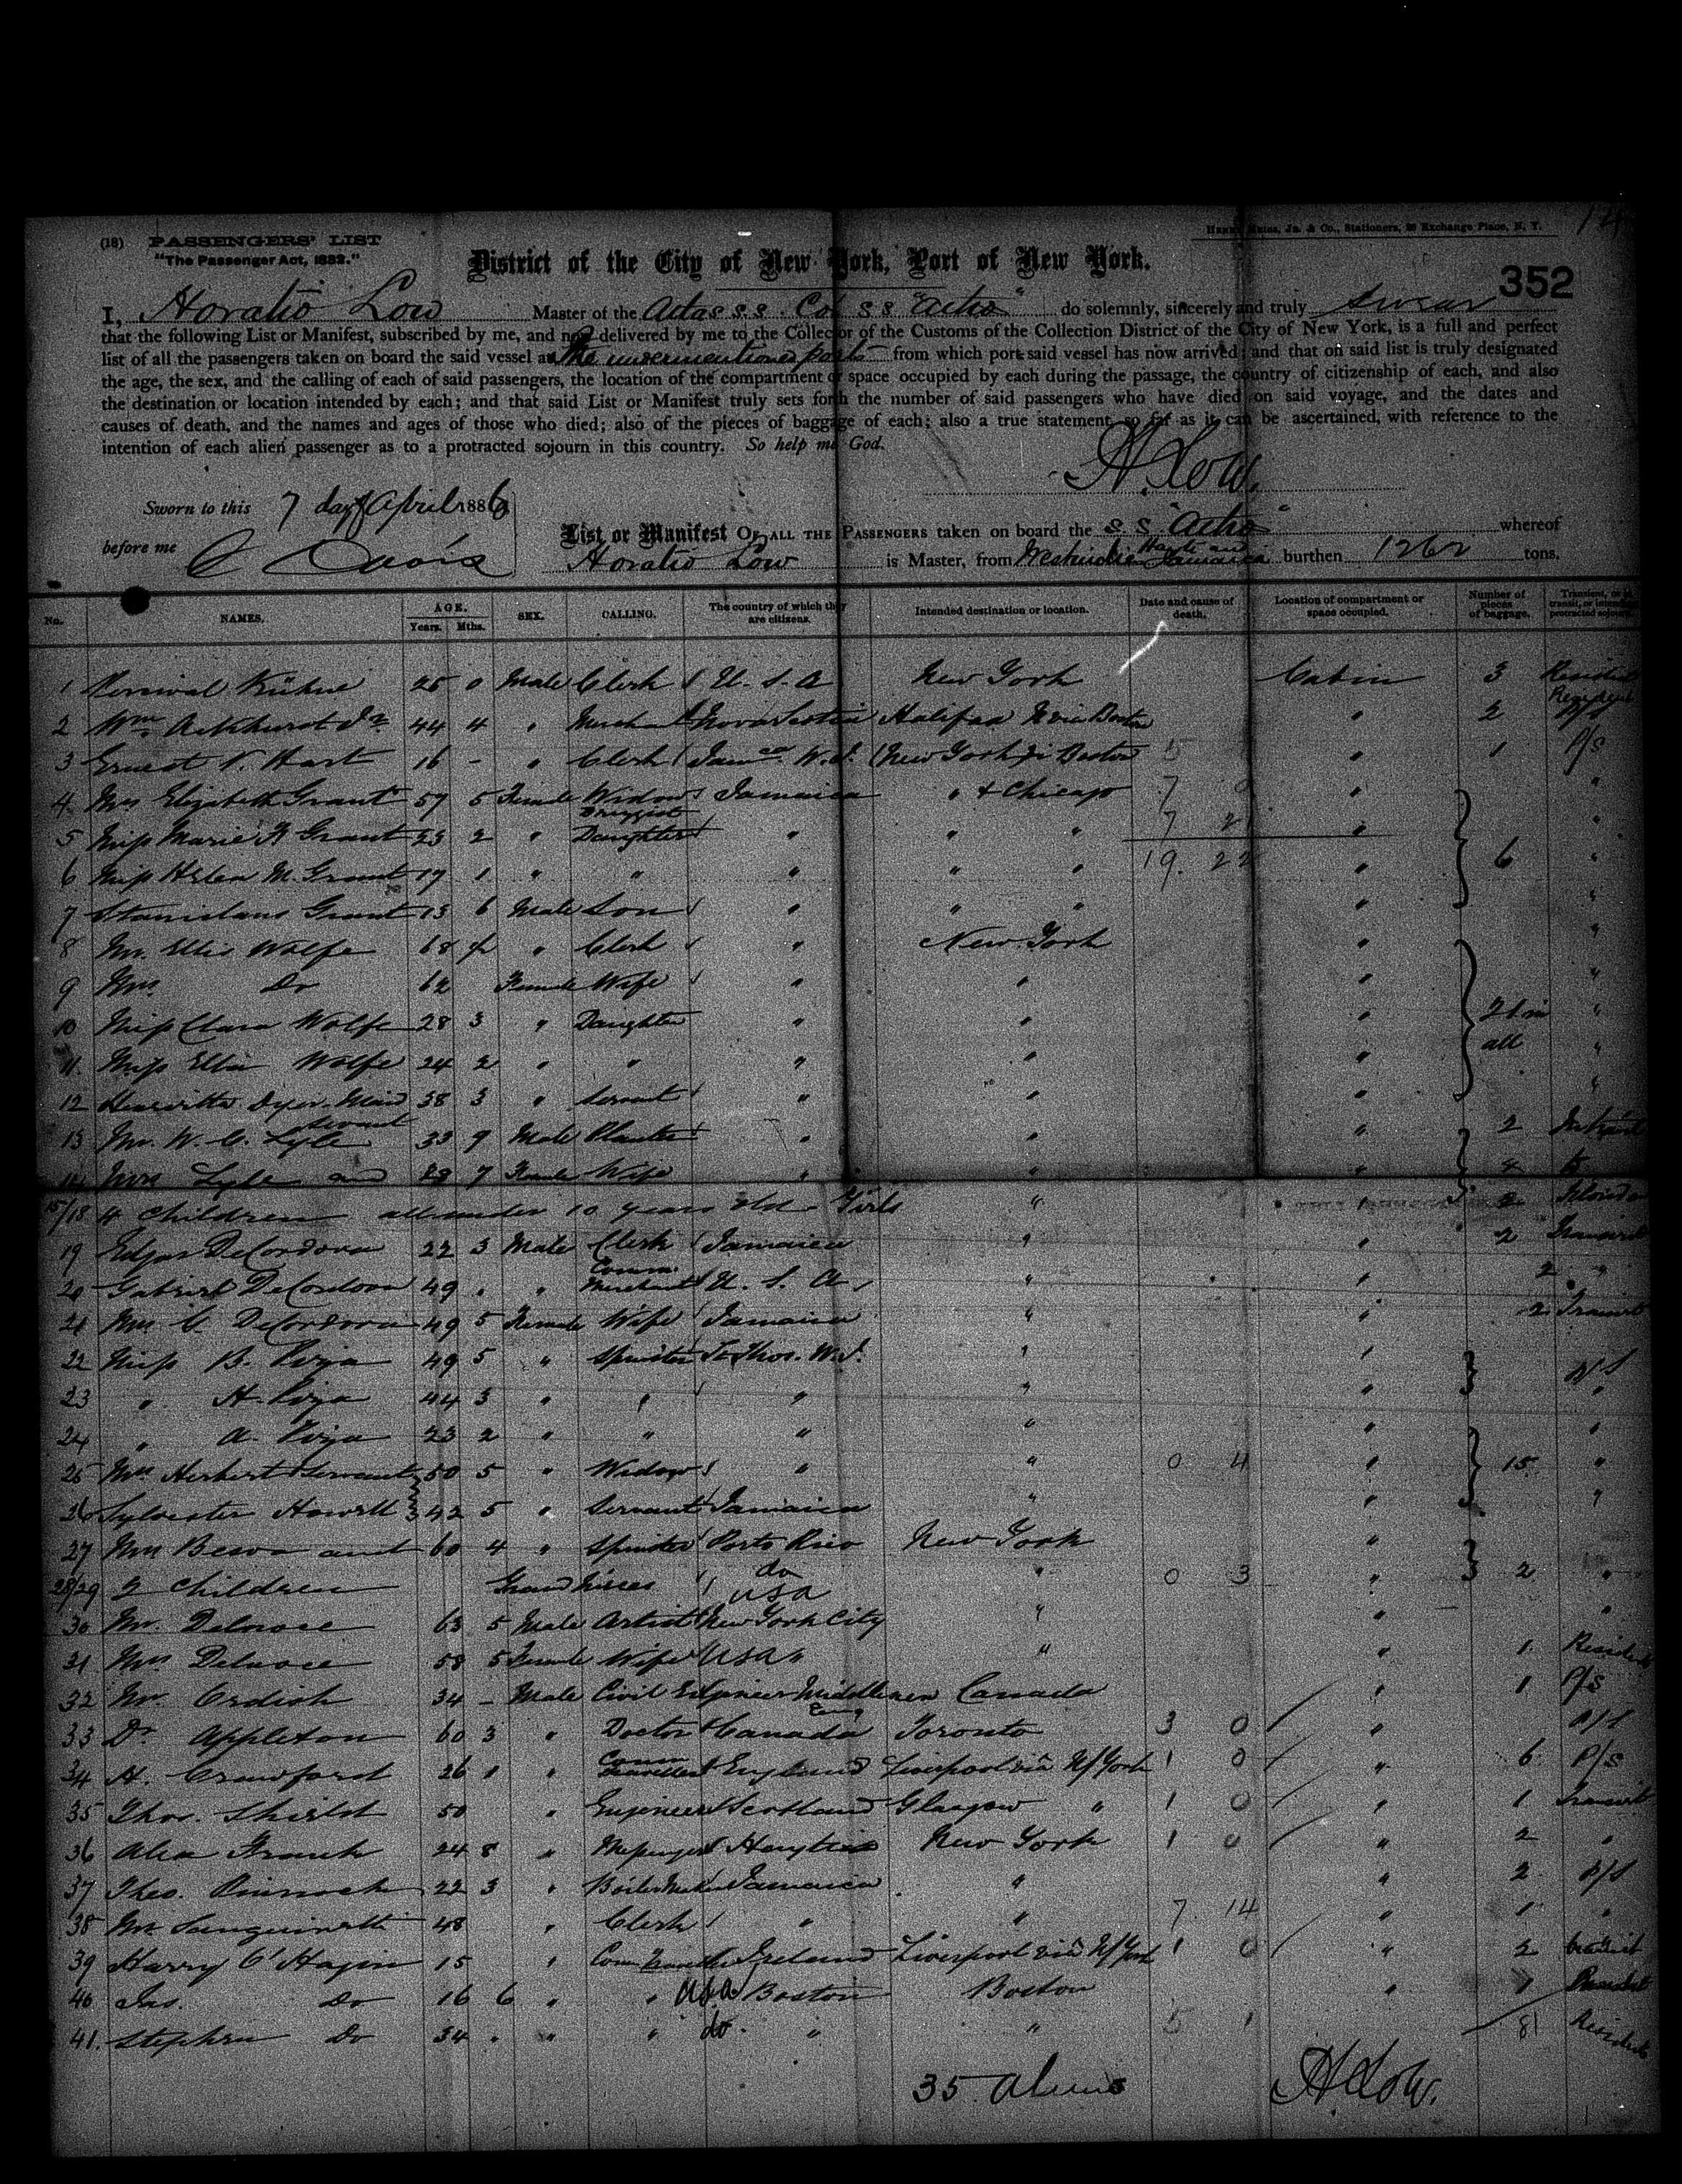 (18) PASSENGERS' LIST
"The Passenger Act, 1882."
HENRY Jr. & Co., Stationers, Exchange Place, N. Y.
District of the City of New York, Port of New York.
352
I, Horatio Low Master of the Atlas S.S. Co S S "Actio" do solemnly, sincerely and truly swear
that the following List or Manifest, subscribed by me, and now delivered by me to the Collector of the Customs of the Collection District of the City of New York, is a full and perfect
list of all the passengers taken on board the said vessel at the ports from which port said vessel has now arrived; and that on said list is truly designated
the age, the sex, and the calling of each of said passengers, the location of the compartment or space occupied by each during the passage, the country of citizenship of each, and also
the destination or location intended by each; and that said List or Manifest truly sets forth the number of said passengers who have died on said voyage, and the dates and
causes of death, and the names and ages of those who died; also of the pieces of baggage of each; also a true statement, so far as it can be ascertained, with reference to the
intention of each alien passenger as to a protracted sojourn in this country. So help me God.
H. Low.
Sworn to this 7 day of April 1886
before me C Davis
List or Manifest OF ALL THE PASSENGERS taken on board the S. S. "Actio" whereof
Horatio Low is Master, from Westindies Hayti and Jamaica burthen 1262 tons.
No. NAMES. AGE. Years. Mths. SEX. CALLING. The country of which they are citizens. Intended destination or location. Date and cause of death. Location of compartment or space occupied. Number of pieces of baggage. Transient, or in transit, or intending protracted sojourn.
1 Percival Kühne 25 0 Male Clerk U. S. A New York Cabin 3 Resident
2 Wm Ackhurst Jr 44 4 " Merch Nova Scotia Halifax N via Boston " 2 Resident
3 Ernest V. Hart 16 - " Clerk Jamca W.I. New York & Boston 5 " 1 P/s
4 Mrs Elizabeth Grant 57 5 Female Widow Jamaica " & Chicago 7 " "
5 Miss Marie Grant 23 2 " Druggist Daughter " " " 7 2 " "
6 Miss Helen M. Grant 19 1 " " " " " 19. 22 " 6 "
7 Stanislaus Grant 13 6 Male Son " " " " "
8 Mr. Ellis Wolfe 68 4 " Clerk " New York " "
9 Mrs. Do 62 Female Wife " " " "
10 Miss Clara Wolfe 28 3 " Daughter " " " 21 in "
11 Miss Ellin Wolfe 24 2 " " " " " all "
12 Henrietta Dyer Maid servant 38 3 " Servant " " " "
13 Mr. W. C. Lyle 33 9 Male Planter " " " 2 Intransit
14 Mrs Lyle and 28 7 Female Wife " " " 4
15/18 4 Children all under 10 years old Girls " " 2
19 Edgar DeCordova 22 3 Male Clerk Jamaica " " 2 Transit
20 Gabriel DeCordova 49 . " Comm. Merchant U. S. A " " 2 "
21 Mrs. C. DeCordova 49 5 Female Wife Jamaica " " 2 Transit
22 Miss B. Piza 49 5 " Spinster St Thos. W.I. " " P/S
23 " H. Piza 44 3 " " " " " "
24 " A. Piza 23 2 " " " " " "
25 Mrs Herbert & Servant 50 5 " Widow " " 0 4 " 15 "
26 Sylvester Howell 42 5 " Servant Jamaica " " "
27 Mrs and 60 4 " Spinster Porto Rico New York "
28/29 2 Children Grand nieces do " 0 3 " 2 "
30 Mr. 63 5 Male Artist USA New York City " " "
31 Mrs 58 5 Female Wife USA " " " 1 Resident
32 Mr. Ordish 34 - Male Civil Engineer Middlesex Eng Canada " 1 P/s
33 Dr Appleton 60 3 " Doctor Canada Toronto 3 0 " P/S
34 H. Crawford 26 1 " Comm Traveller England Liverpool via N/York 1 0 " 6 P/s
35 Thos. Shield 50 " Engineer Scotland Glasgow " 1 0 " 1 Transit
36 Alex Frank 24 8 " Messenger Haytien New York 1 0 " 2 "
37 Theo. Pinnock 22 3 " Boiler Maker Jamaica " " 2 P/S
38 Mr Sanguinetti 48 " Clerk " " 7. 14 " 1 "
39 Harry O'Hagin 15 " Com Traveller Ireland Liverpool via N/York 1 0 " 2 transit
40 Jas. Do 16 6 " " USA Boston Boston " 1 Resident
41. Stephen Do 34 . " " do. " " 5 1 81 Resident
35 Aliens H. Low.